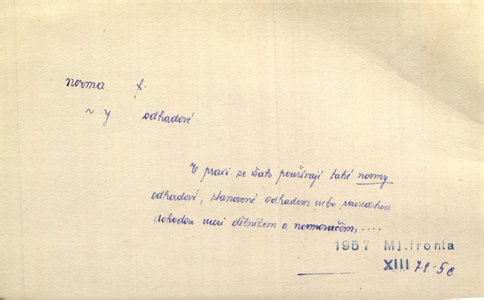 norma f.
~ y odhadové
V praxi se však používají také normy
odhadové, stanovené odhadem nebo sousedskou
dohodou mezi dělníkem a normovačem, ....
1957 Ml.fronta
XIII 78-5c